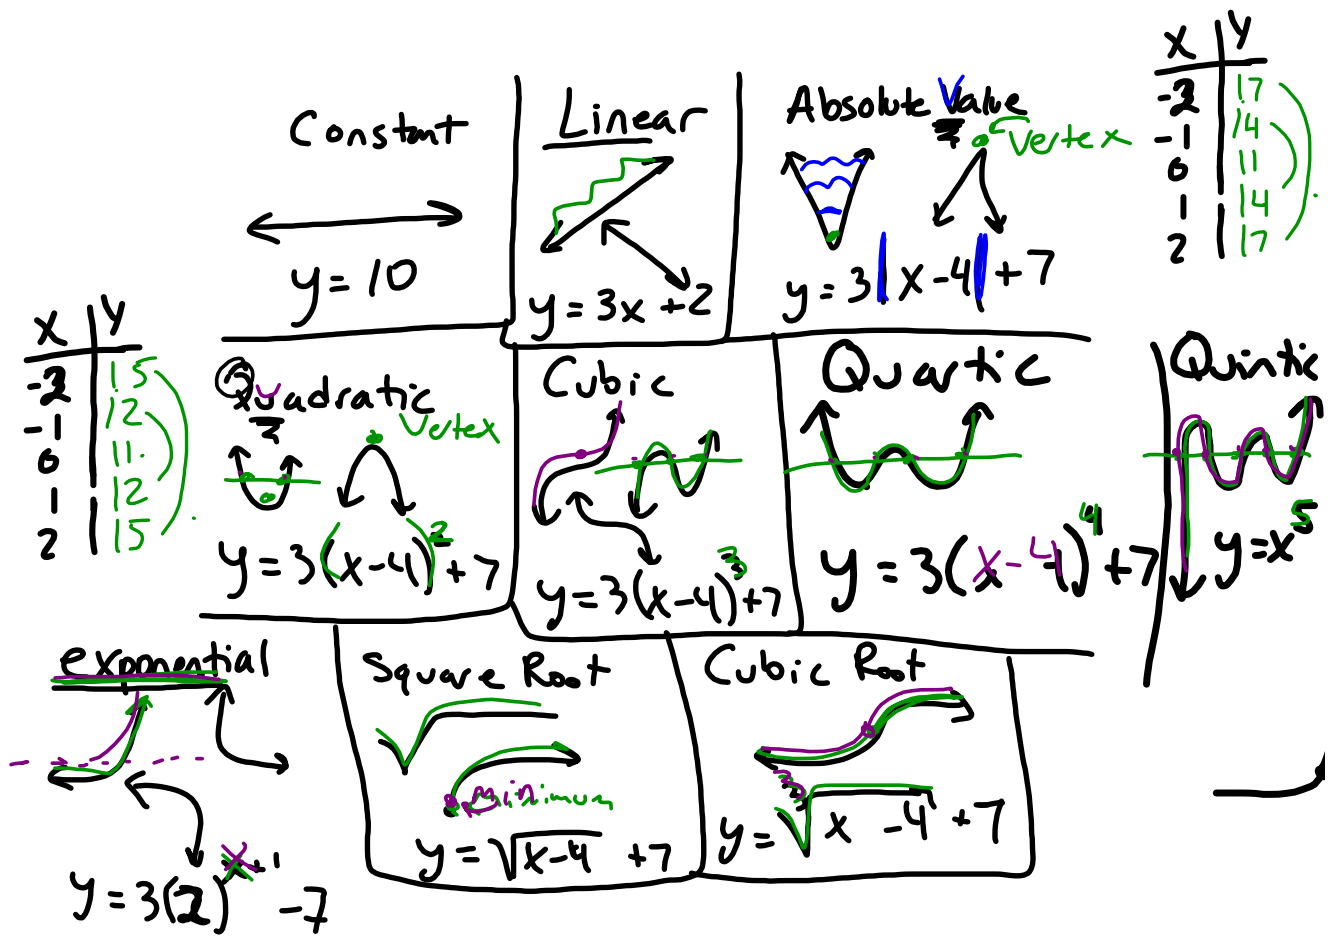 Constant
y = 10
Linear
y = 3x + 2
Absolute Value
Vertex
y = 3|x - 4| + 7
X Y
-2 17
-1 14
0 11
1 14
2 17
X Y
-2 15
-1 12
0 11
1 12
2 15
Quadratic
Vertex
y = 3(x - 4)² + 7
Cubic
y = 3(x - 4)³ + 7
Quartic
y = 3(x - 4)⁴ + 7
Quintic
y = x⁵
exponential
y = 3(2)ˣ⁺¹ - 7
Square Root
minimum
y = √x-4 + 7
Cubic Root
y = ∛x - 4 + 7